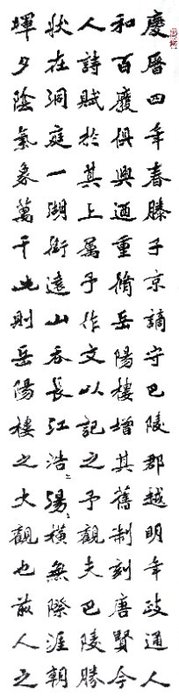 慶曆四年春滕子京謫守巴陵郡越明年政通人
和百廢俱興迺重脩岳陽樓增其舊制刻唐賢今
人詩賦於其上屬予作文以記之予觀夫巴陵勝
狀在洞庭一湖銜遠山吞長江浩〻湯〻橫無際涯朝
暉夕陰氣象萬千此則岳陽樓之大觀也前人之